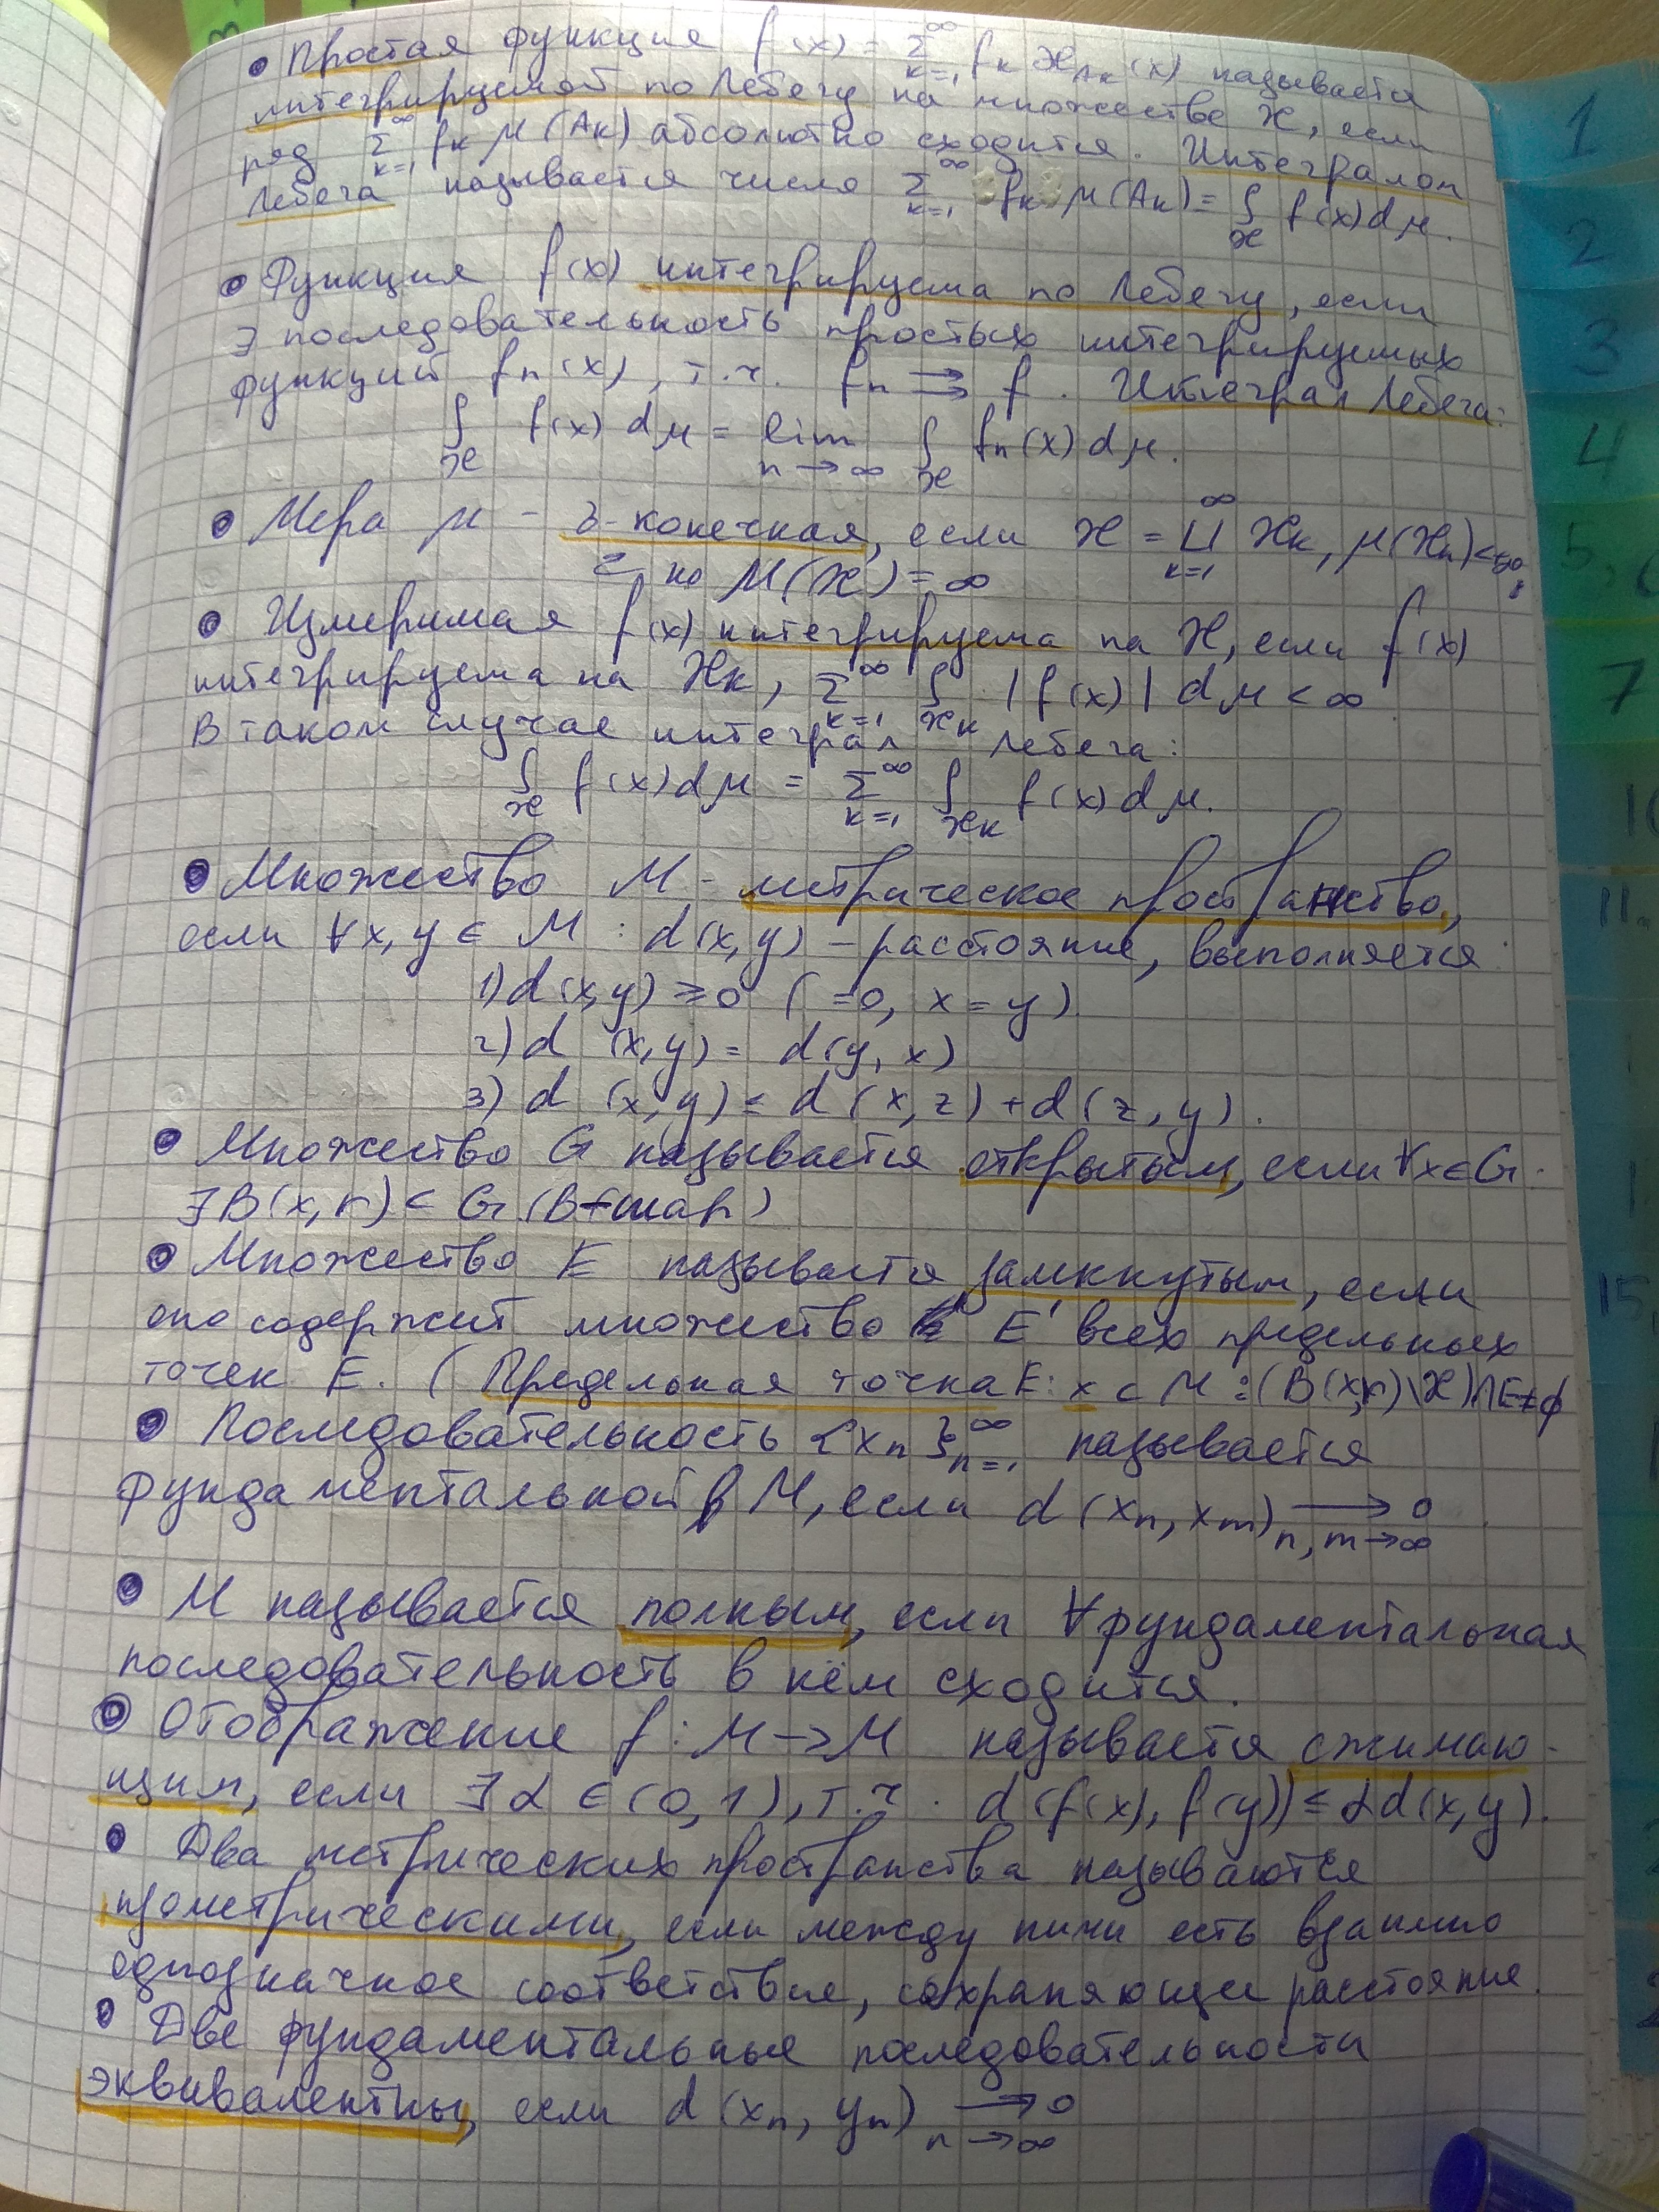 • Простая функция f(x) = Σ_{k=1}^∞ f_k χ_{A_k}(x) называется
интегрируемой по Лебегу на множестве X, если
ряд Σ_{k=1}^∞ f_k μ(A_k) абсолютно сходится. Интегралом
Лебега называется число Σ_{k=1}^∞ f_k μ(A_k) = ∫_X f(x)dμ.
• Функция f(x) интегрируема по Лебегу, если
∃ последовательность простых интегрируемых
функций f_n(x), т.ч. f_n ⇉ f. Интеграл Лебега:
∫_X f(x) dμ = lim_{n→∞} ∫_X f_n(x) dμ.
• Мера μ - σ-конечная, если X = ⊔_{k=1}^∞ X_k, μ(X_k)<∞,
но μ(X) = ∞
• Измеримая f(x) интегрируема на X, если f(x)
интегрируема на X_k, Σ_{k=1}^∞ ∫_{X_k} |f(x)| dμ < ∞
В таком случае интеграл Лебега:
∫_X f(x)dμ = Σ_{k=1}^∞ ∫_{X_k} f(x)dμ.
• Множество M - метрическое пространство,
если ∀x, y ∈ M : d(x,y) – расстояние, выполняется:
1) d(x,y) ≥ 0 ( =0, x = y)
2) d (x,y) = d(y, x)
3) d (x,y) ≤ d (x,z) + d(z,y).
• Множество G называется открытым, если ∀x∈G
∃B(x,r) ⊂ G (B - шар)
• Множество E называется замкнутым, если
оно содержит множество E' всех предельных
точек E. (Предельная точка E: x ⊂ M : (B(x,r)\X)∩E≠∅
• Последовательность {x_n}_{n=1}^∞ называется
фундаментальной в M, если d (x_n, x_m) →_{n,m→∞} 0
• M называется полным, если ∀ фундаментальная
последовательность в нём сходится.
• Отображение f : M → M называется сжимаю-
щим, если ∃ α ∈ (0,1), т.ч. d(f(x), f(y)) ≤ αd(x,y).
• Два метрических пространства называются
изометрическими, если между ними есть взаимно
однозначное соответствие, сохраняющее расстояние.
• Две фундаментальные последовательности
эквивалентны, если d (x_n, y_n) →_{n→∞} 0
1
2
3
4
5,
7
11
15